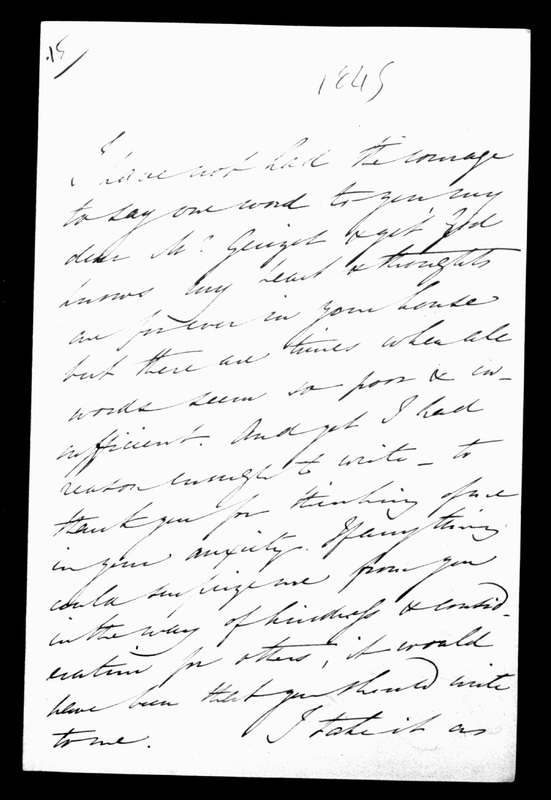 15
1845
I have not had the courage
to say one word to you my
dear Mr. Guizot & yet God
knows my heart & thoughts
are for ever in your house
but there are times when all
words seem so poor & in-
sufficient. And yet I had
reason enough to write - to
thank you for thinking of me
in your anxiety. If anything
could surprize me from you
in the way of kindness & consid-
eration for others, it would
have been that you should write
to me. I take it as